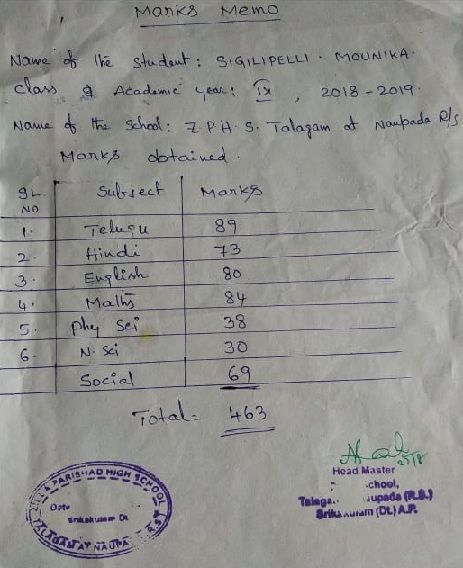 Marks Memo
Name of the student: SIGILIPELLI. MOUNIKA.
Class & Academic year: IX, 2018-2019.
Name of the School: Z.P.H.S. Talagam at Naupada R/S
Marks obtained.
SL. NO Subject Marks
1. Telugu 89
2. Hindi 73
3. English 80
4. Maths 84
5. Phy Sci 38
6. N. Sci 30
Social 69
Total = 463
Head Master
chool,
upada (R.S.)
Srikakulam (Dt.) A.P.
PARISHAD HIGH SCHOOL
Date
Srikakulam Dt.